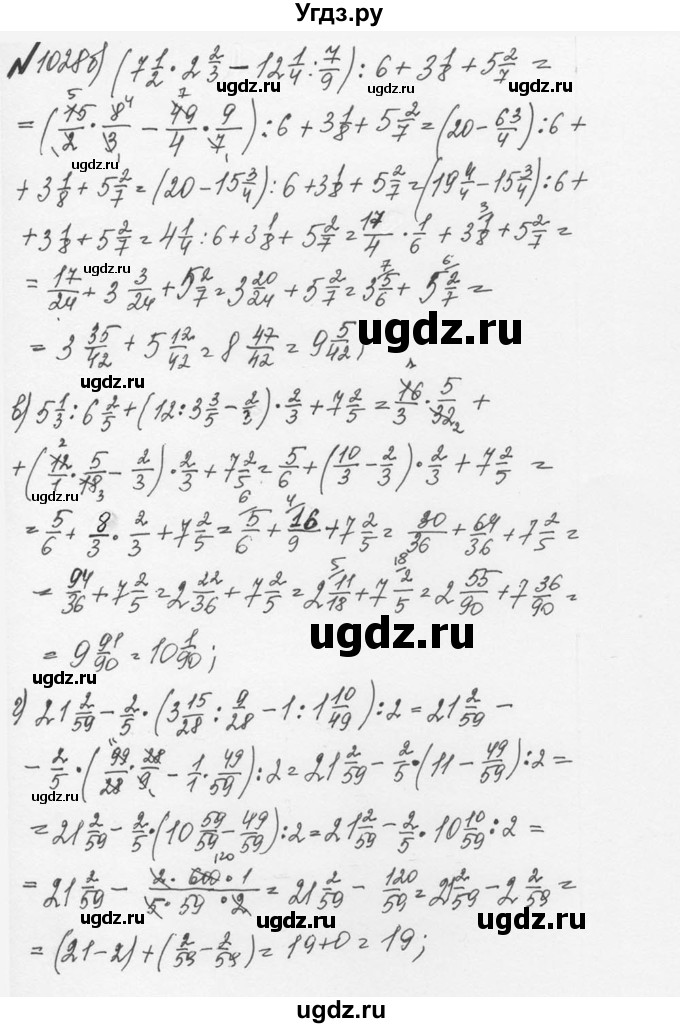 Угдз.ру
№1028 б) (7 1/2 · 2 2/3 − 12 1/4 : 7/9) : 6 + 3 1/8 + 5 2/7 =
= (15/2 · 8/3 − 49/4 · 9/7) : 6 + 3 1/8 + 5 2/7 = (20 − 63/4) : 6 +
ugdz.ru ugdz.ru ugdz.ru
+ 3 1/8 + 5 2/7 = (20 − 15 3/4) : 6 + 3 1/8 + 5 2/7 = (19 4/4 − 15 3/4) : 6 +
+ 3 1/8 + 5 2/7 = 4 1/4 : 6 + 3 1/8 + 5 2/7 = 17/4 · 1/6 + 3 1/8 + 5 2/7 =
ugdz.ru ugdz.ru
= 17/24 + 3 3/24 + 5 2/7 = 3 20/24 + 5 2/7 = 3 5/6 + 5 2/7 =
ugdz.ru
= 3 35/42 + 5 12/42 = 8 47/42 = 9 5/42;
ugdz.ru
в) 5 1/3 : 6 2/5 + (12 : 3 3/5 − 2/3) · 2/3 + 7 2/5 = 16/3 · 5/32 +
+ (12/1 · 5/18 − 2/3) · 2/3 + 7 2/5 = 5/6 + (10/3 − 2/3) · 2/3 + 7 2/5 =
ugdz.ru
= 5/6 + 8/3 · 2/3 + 7 2/5 = 5/6 + 16/9 + 7 2/5 = 30/36 + 64/36 + 7 2/5 =
= 94/36 + 7 2/5 = 2 22/36 + 7 2/5 = 2 11/18 + 7 2/5 = 2 55/90 + 7 36/90 =
ugdz.ru
= 9 91/90 = 10 1/90;
ugdz.ru
г) 21 2/59 − 2/5 · (3 15/28 : 9/28 − 1 : 1 10/49) : 2 = 21 2/59 −
− 2/5 · (99/28 · 28/9 − 1/1 · 49/59) : 2 = 21 2/59 − 2/5 · (11 − 49/59) : 2 =
ugdz.ru
= 21 2/59 − 2/5 · (10 59/59 − 49/59) : 2 = 21 2/59 − 2/5 · 10 10/59 : 2 =
= 21 2/59 − 2 · 600 · 1/5 · 59 · 2 = 21 2/59 − 120/59 = 21 2/59 − 2 2/59 =
ugdz.ru ugdz.ru
= (21 − 2) + (2/59 − 2/59) = 19 + 0 = 19;
ugdz.ru
ugdz.ru